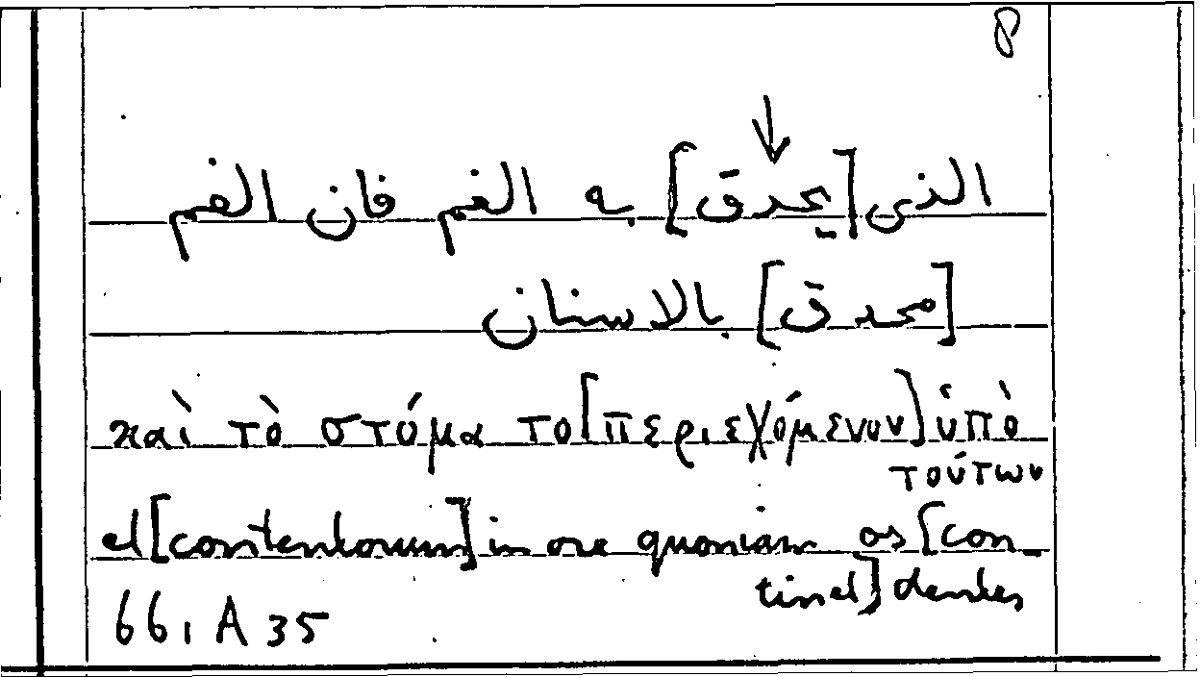 8
الذى [يحدق] به الفم فان الفم
[محدق] بالاسنان
καὶ τὸ στόμα το[περιεχόμενον] ὑπὸ
τούτων
et [contentorum] in ore quoniam os [con-
tinet] dentes
66, A 35